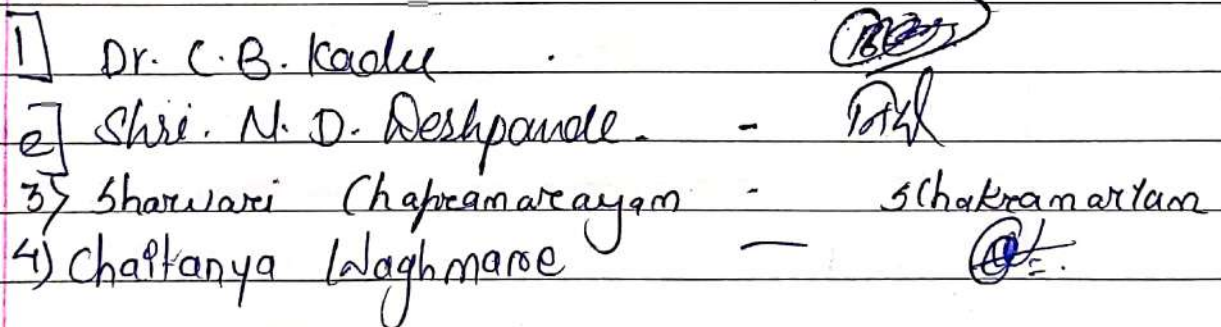 1] Dr. C. B. Kadu
2] Shri. N. D. Deshpande. -
3) Sharwari Chakranarayan - SChakranarayan
4) Chaitanya Waghmare -